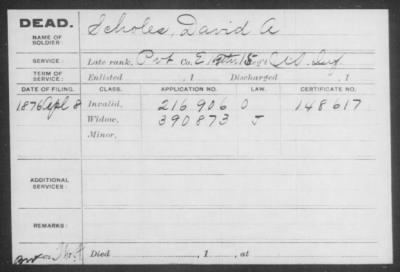 DEAD.
NAME OF SOLDIER: Scholes, David A
SERVICE: Late rank, Pvt Co. E, 15 Reg't U.S. Inf
TERM OF SERVICE: Enlisted , 1 Discharged , 1
DATE OF FILING. CLASS. APPLICATION NO. LAW. CERTIFICATE NO.
1876 Apl 8 Invalid, 216 906 148617
Widow, 390873
Minor,
ADDITIONAL SERVICES:
REMARKS:
Died , 1 , at